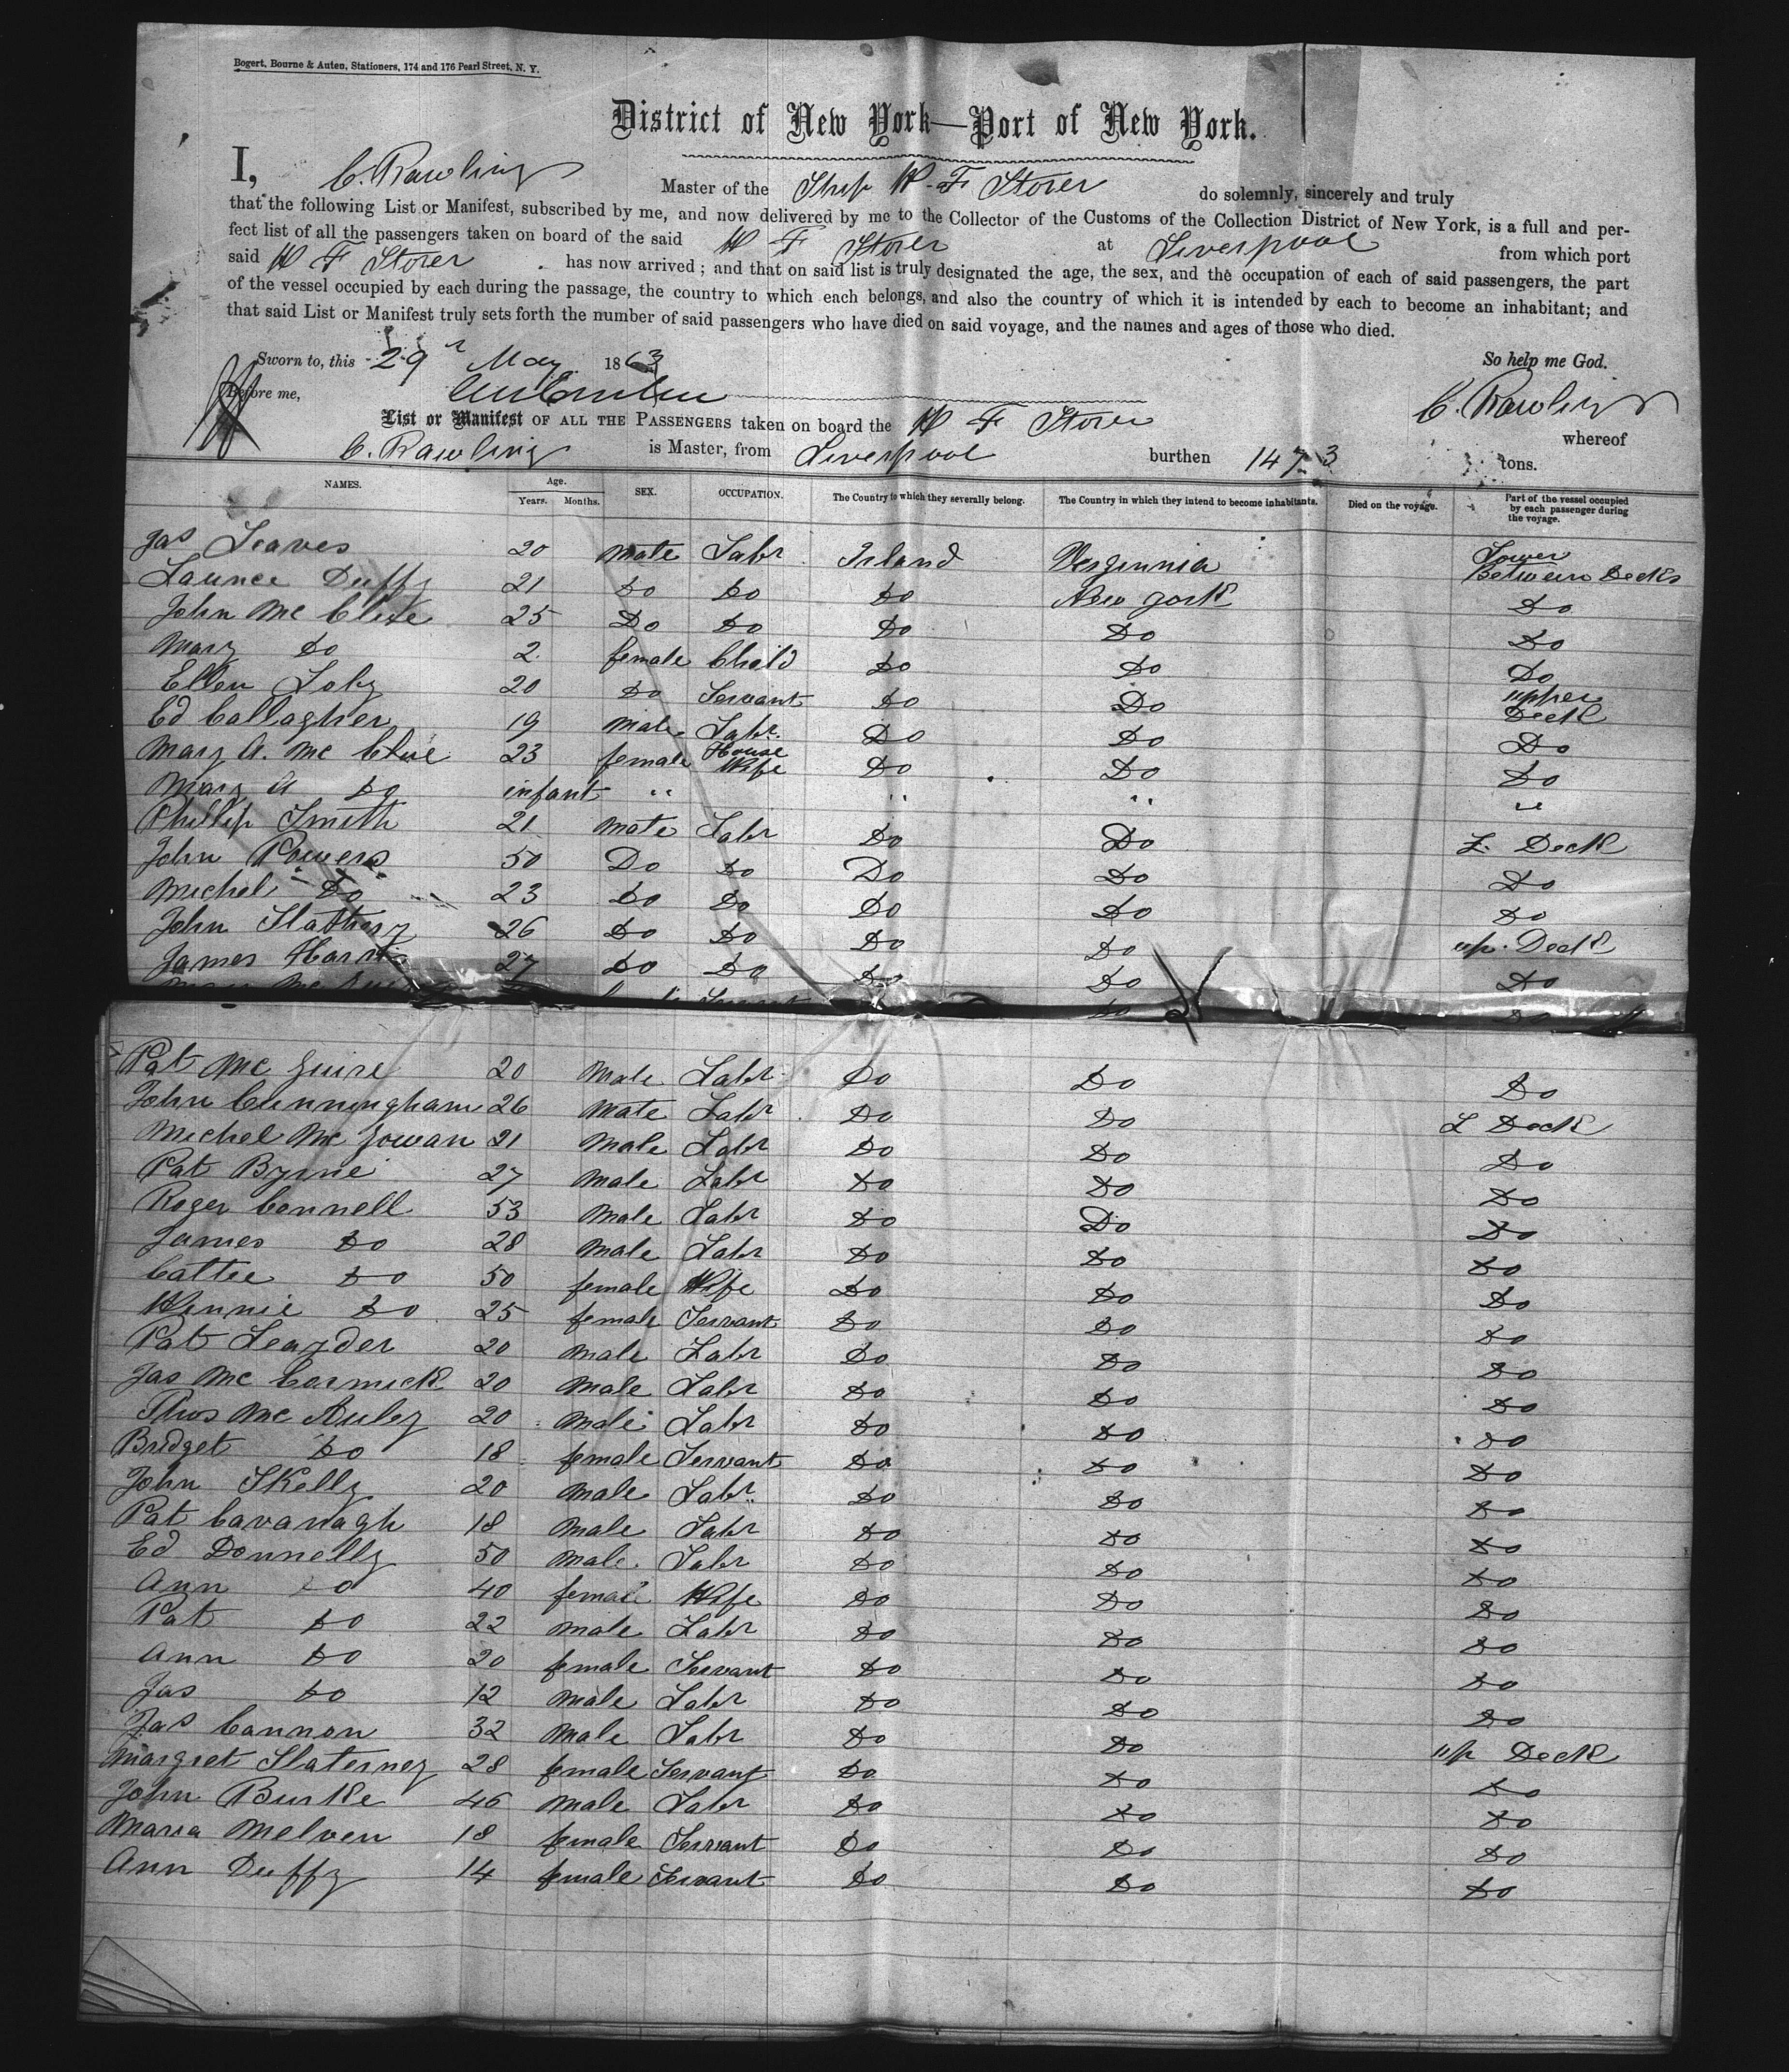 Bogert, Bourne & Auten, Stationers, 174 and 176 Pearl Street, N. Y.
District of New York—Port of New York.
I, C. Rawling Master of the Ship W. F Storer do solemnly, sincerely and truly
that the following List or Manifest, subscribed by me, and now delivered by me to the Collector of the Customs of the Collection District of New York, is a full and per-
fect list of all the passengers taken on board of the said W F Storer at Liverpool from which port
said W F Storer has now arrived; and that on said list is truly designated the age, the sex, and the occupation of each of said passengers, the part
of the vessel occupied by each during the passage, the country to which each belongs, and also the country of which it is intended by each to become an inhabitant; and
that said List or Manifest truly sets forth the number of said passengers who have died on said voyage, and the names and ages of those who died.
Sworn to, this 29 May 1863 So help me God.
Before me, C. Rawling
List or Manifest OF ALL THE PASSENGERS taken on board the W F Storer whereof
C. Rawling is Master, from Liverpool burthen 1473 tons.
NAMES. Age. Years. Months. SEX. OCCUPATION. The Country to which they severally belong. The Country in which they intend to become inhabitants. Died on the voyage. Part of the vessel occupied by each passenger during the voyage.
Jas Leaves 20 male Labr Irland Verginnia Lower Between Decks
Launce Duffy 21 Do Do Do New York Do
John Mc Clue 25 Do Do Do Do Do
Mary Do 2 female Child Do Do Do
Ellen Foley 20 Do Servant Do Do upper Deck
Ed Callagher 19 male Labr. Do Do Do
Mary A. Mc Clue 23 female House Wife Do Do Do
Mary A Do infant " " " "
Phillip Smith 21 male Labr Do Do L. Deck
John Powers 50 Do Do Do Do Do
Michel Do 23 Do Do Do Do Do
John Slattery 26 Do Do Do Do up. Deck
James Harris 27 Do Do Do Do Do
Mary Mc Do Do
Pat Mc Guire 20 Male Labr Do Do Do
John Cunningham 26 Male Labr Do Do L Deck
Michel Mc Gowan 21 Male Labr Do Do Do
Pat Byrne 27 Male Labr Do Do Do
Roger Connell 53 Male Labr Do Do Do
James Do 28 Male Labr Do Do Do
Cattie Do 50 female Wife Do Do Do
Winnie Do 25 female Servant Do Do Do
Pat 20 male Labr Do Do Do
Jas Mc Cormick 20 Male Labr Do Do Do
Thos Mc Auley 20 Male Labr Do Do Do
Bridget Do 18 female Servant Do Do Do
John Skelly 20 Male Labr. Do Do Do
Pat Cavanagh 18 Male Labr Do Do Do
Ed Donnelly 50 Male Labr Do Do Do
Ann Do 40 female Wife Do Do Do
Pat Do 22 Male Labr Do Do Do
Ann Do 20 female Servant Do Do Do
Jas Do 12 Male Labr Do Do Do
Jas Cannon 32 Male Labr Do Do up Deck
Margret 28 female Servant Do Do Do
John Burke 46 Male Labr Do Do Do
Maria Melven 18 female Servant Do Do Do
Ann Duffy 14 female Servant Do Do Do